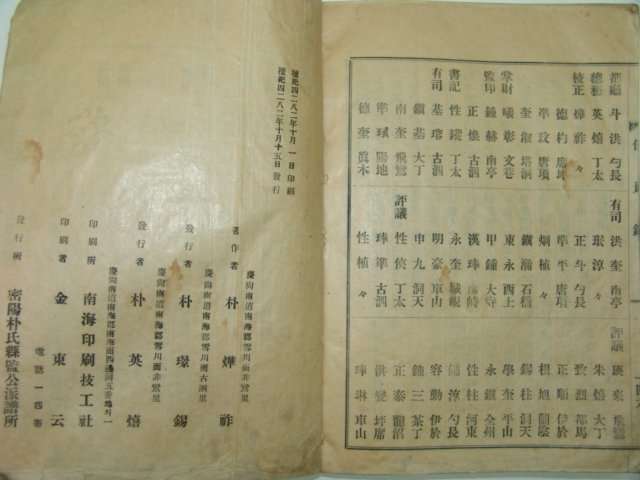 都廳 斗洪 勺長
總務 英熺 丁太
校正 燁祚 々
德杓 唐坪
準玟 唐項
奎淑 塔洞
掌財 曦彰 文巷
監印 鍾赫 南亭
正煥 古泗
書記 性鏦 丁太
有司 基瑢 古泗
鎭基 大丁
南奎 飛鸞
準珷 陽地
德奎 眞木
有司 洪奎 南亭
珉淳 々
正斗 勺長
準平 唐項
炯植 々
鎭瀚 石橋
東永 西上
甲鍾 大寺
漢琫
永奎 城峴
明豪 車山
申九 洞天
評議 性俠 丁太
琫準 古泗
性植 々
評議 瑛來 飛鸞
朱熺 大丁
致烈 都馬
正順 伊於
根旭 蘭陰
鍾柱 洞天
學奎 平山
永鎭 全州
性桂 河東
鍾淳 勺長
容勳 伊於
鍾三 茶丁
正泰 龍沼
洪燮 坪席
琫琳 車山
檀紀四二八二年十月一日印刷
檀紀四二八二年十月十五日發行
慶尙南道南海郡雪川面非鸞里
著作者 朴燁祚
慶尙南道南海郡雪川面古泗里
發行者 朴璟錫
慶尙南道南海郡雪川面非鸞里
發行者 朴英熺
慶尙南道南海郡南海面西邊洞五番地의一
印刷所 南海印刷技工社
印刷者 金東云
電話一四番
發行所 密陽朴氏縣監公派譜所